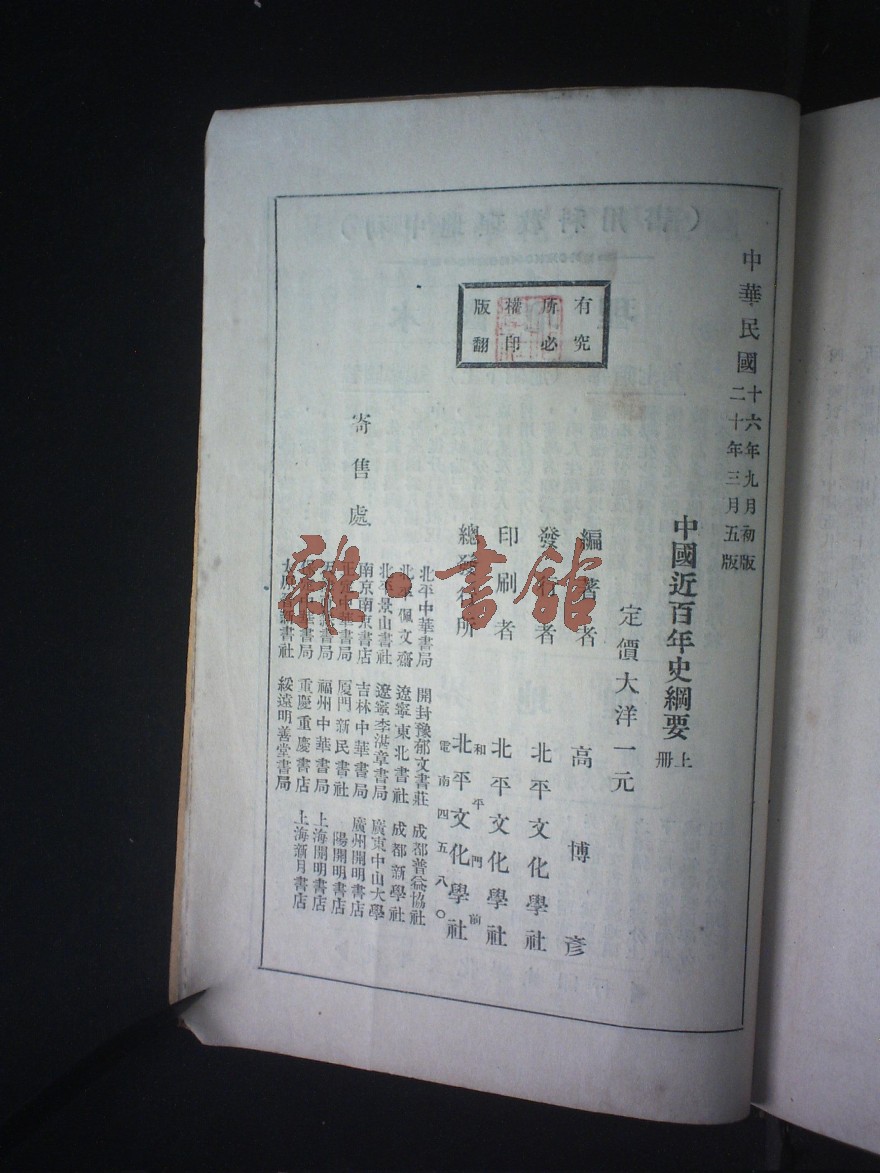 中華民國
十六年九月初版
二十年三月五版
中國近百年史綱要
上冊
定價大洋一元
編著者 高博彥
發行者 北平文化學社
印刷者 北平文化學社
總發行所 北平文化學社
和平門前
電南四五八〇
有究
所必
權印
版翻
寄售處
北平中華書局 開封豫郁文書莊 成都普益協社
北平佩文齋 遼寧東北書社 成都新學社
北平景山書社 遼寧李湛章書局 廣東中山大學
南京南京書店 吉林中華書局 廣州開明書店
中華書局 廈門新民書社 陽開明書店
書局 福州中華書局 上海開明書店
書局 重慶重慶書店 上海新月書店
新書社 綏遠明善堂書局
雜·書館